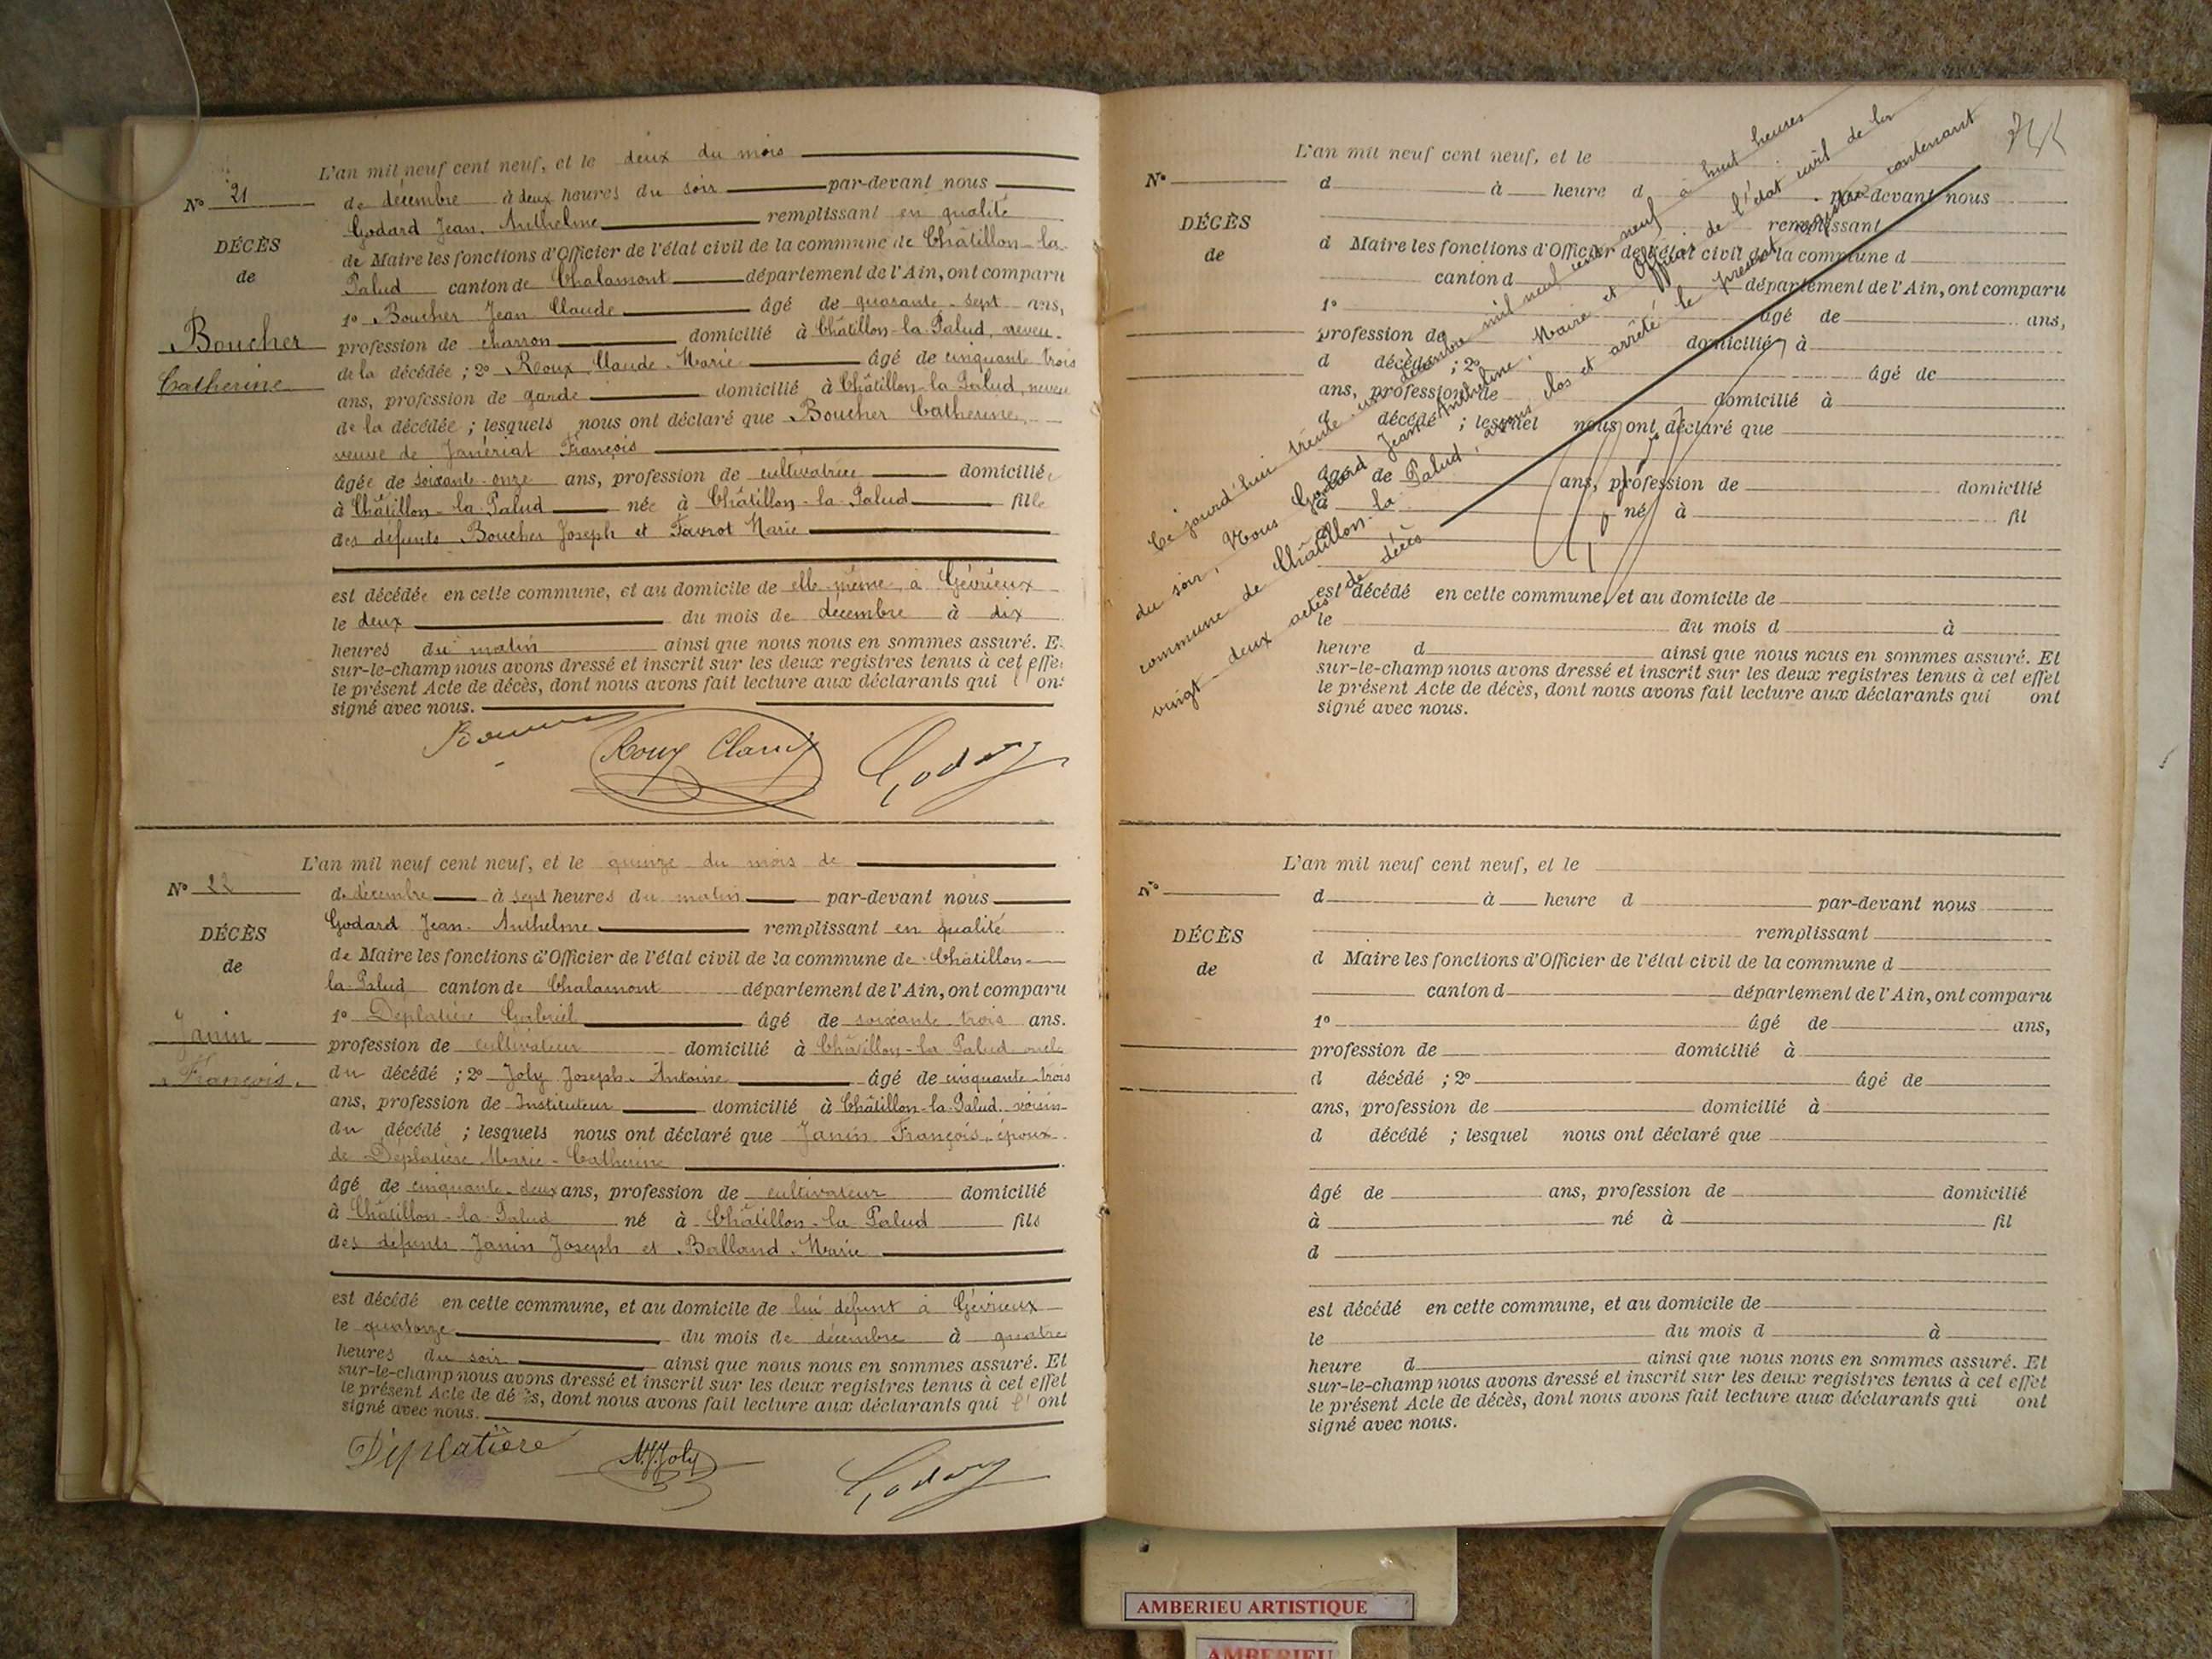 L'an mil neuf cent neuf, et le deux du mois
N° 21
de décembre à deux heures du soir par-devant nous
Godard Jean-Anthelme remplissant en qualité
DÉCÈS
de Maire les fonctions d'Officier de l'état civil de la commune de Châtillon-la-
de
Palud canton de Chalamont département de l'Ain, ont comparu
1° Boucher Jean Claude âgé de quarante-sept ans,
Boucher
profession de charron domicilié à Châtillon-la-Palud, neveu
de la décédée ; 2° Roux Claude-Marie âgé de cinquante trois
Catherine
ans, profession de garde domicilié à Châtillon-la-Palud, neveu
de la décédée ; lesquels nous ont déclaré que Boucher Catherine,
veuve de Janériat François
âgée de soixante-onze ans, profession de cultivatrice domiciliée
à Châtillon-la-Palud née à Châtillon-la-Palud fille
des défunts Boucher Joseph et Favrot Marie
est décédée en cette commune, et au domicile de elle-même à Gévrieux
le deux du mois de décembre à dix
heures du matin ainsi que nous nous en sommes assuré. E
sur-le-champ nous avons dressé et inscrit sur les deux registres tenus à cet effe
le présent Acte de décès, dont nous avons fait lecture aux déclarants qui l'ont
signé avec nous.
Roux Claude Godard
L'an mil neuf cent neuf, et le quinze du mois de
N° 22
de décembre à sept heures du matin par-devant nous
Godard Jean-Anthelme remplissant en qualité
DÉCÈS
de Maire les fonctions d'Officier de l'état civil de la commune de Châtillon-
de
la-Palud canton de Chalamont département de l'Ain, ont comparu
1° Déplatière Gabriel âgé de soixante-trois ans.
Janin
profession de cultivateur domicilié à Châtillon-la-Palud oncle
François.
du décédé ; 2° Joly Joseph-Antoine âgé de cinquante-trois
ans, profession de Instituteur domicilié à Châtillon-la-Palud, voisin
du décédé ; lesquels nous ont déclaré que Janin François, époux
de Déplatière Marie-Catherine
âgé de cinquante-deux ans, profession de cultivateur domicilié
à Châtillon-la-Palud né à Châtillon-la-Palud fils
des défunts Janin Joseph et Balland Marie
est décédé en cette commune, et au domicile de lui défunt à Gévrieux
le quatorze du mois de décembre à quatre
heures du soir ainsi que nous nous en sommes assuré. Et
sur-le-champ nous avons dressé et inscrit sur les deux registres tenus à cet effet
le présent Acte de décès, dont nous avons fait lecture aux déclarants qui l'ont
signé avec nous.
Déplatière Joly Godard
L'an mil neuf cent neuf, et le
N°
d à heure d par-devant nous
DÉCÈS
remplissant
de
d Maire les fonctions d'Officier de l'état civil de la commune d
canton d département de l'Ain, ont comparu
1° âgé de ans,
profession de domicilié à
d décédé ; 2° âgé de
ans, profession de domicilié à
d décédé ; lesquel nous ont déclaré que
âgé de ans, profession de domicilié
à né à fil
d
est décédé en cette commune, et au domicile de
le du mois d à
heure d ainsi que nous nous en sommes assuré. Et
sur-le-champ nous avons dressé et inscrit sur les deux registres tenus à cet effet
le présent Acte de décès, dont nous avons fait lecture aux déclarants qui ont
signé avec nous.
Ce jourd'hui trente-un décembre mil neuf cent neuf à huit heures
du soir, Nous Godard Jean-Anthelme, Maire et Officier de l'état civil de la
commune de Châtillon-la-Palud, avons clos et arrêté le présent registre contenant
vingt-deux actes de décès
L'an mil neuf cent neuf, et le
N°
d à heure d par-devant nous
remplissant
DÉCÈS
d Maire les fonctions d'Officier de l'état civil de la commune d
de
canton d département de l'Ain, ont comparu
1° âgé de ans,
profession de domicilié à
d décédé ; 2° âgé de
ans, profession de domicilié à
d décédé ; lesquel nous ont déclaré que
âgé de ans, profession de domicilié
à né à fil
d
est décédé en cette commune, et au domicile de
le du mois d à
heure d ainsi que nous nous en sommes assuré. Et
sur-le-champ nous avons dressé et inscrit sur les deux registres tenus à cet effet
le présent Acte de décès, dont nous avons fait lecture aux déclarants qui ont
signé avec nous.
AMBERIEU ARTISTIQUE
AMBERIEU